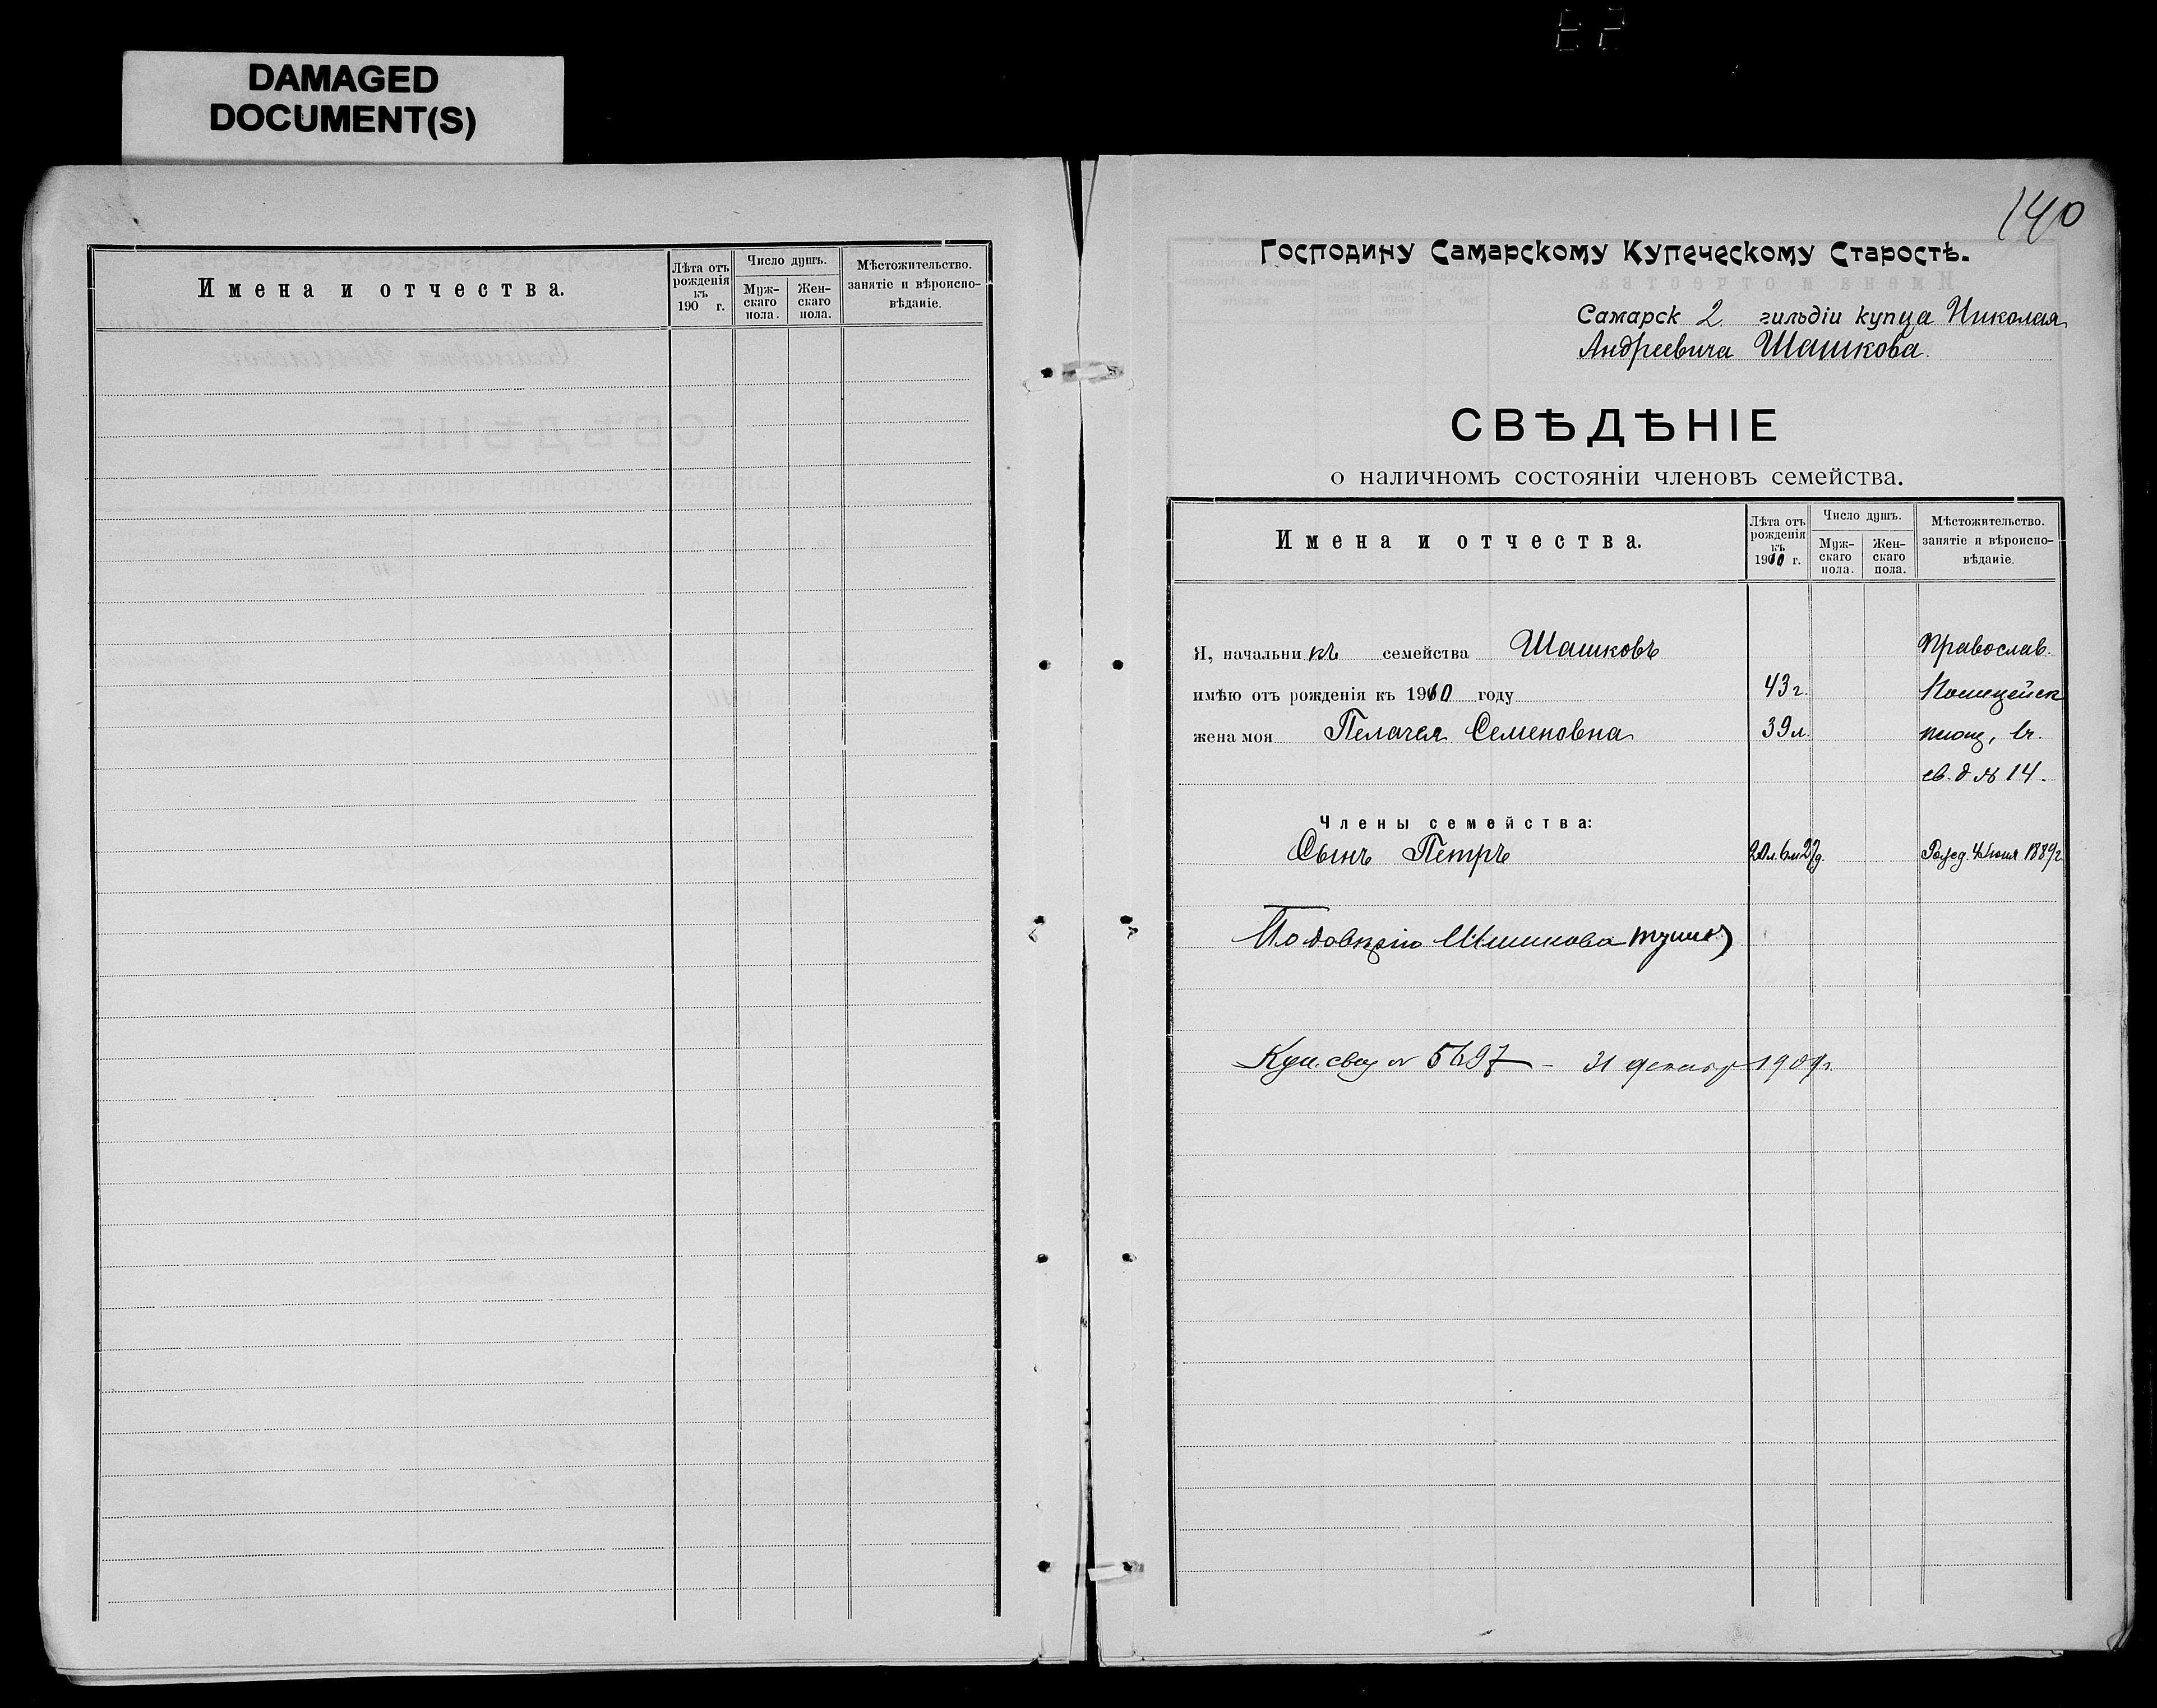 DAMAGED
DOCUMENT(S)
Имена и отчества.
Лѣта отъ рожденія къ 190 г.
Число душъ.
Муж-скаго пола.
Жен-скаго пола.
Мѣстожительство. занятіе и вѣроиспо-вѣданіе.
140
Господину Самарскому Купеческому Старостѣ.
Самарск 2 гильдіи купца Николая
Андреевича Шашкова.
СВѢДѢНІЕ
о наличномъ состояніи членовъ семейства.
Имена и отчества.
Лѣта отъ рожденія къ 1910 г.
Число душъ.
Муж-скаго пола.
Жен-скаго пола.
Мѣстожительство. занятіе и вѣроиспо-вѣданіе.
Я, начальникъ семейства Шашковъ Православ.
имѣю отъ рожденія къ 1910 году 43 г. Полицейск
жена моя Пелагея Семеновна 39 л. площ, въ
св. д № 14.
Члены семейства:
Сынъ Петръ 20 л. 6 м 27 д. Рожд. 4 Іюня 1889 г
Шашкова
Куп. свид № 5697 - 31 декабр 1909 г.